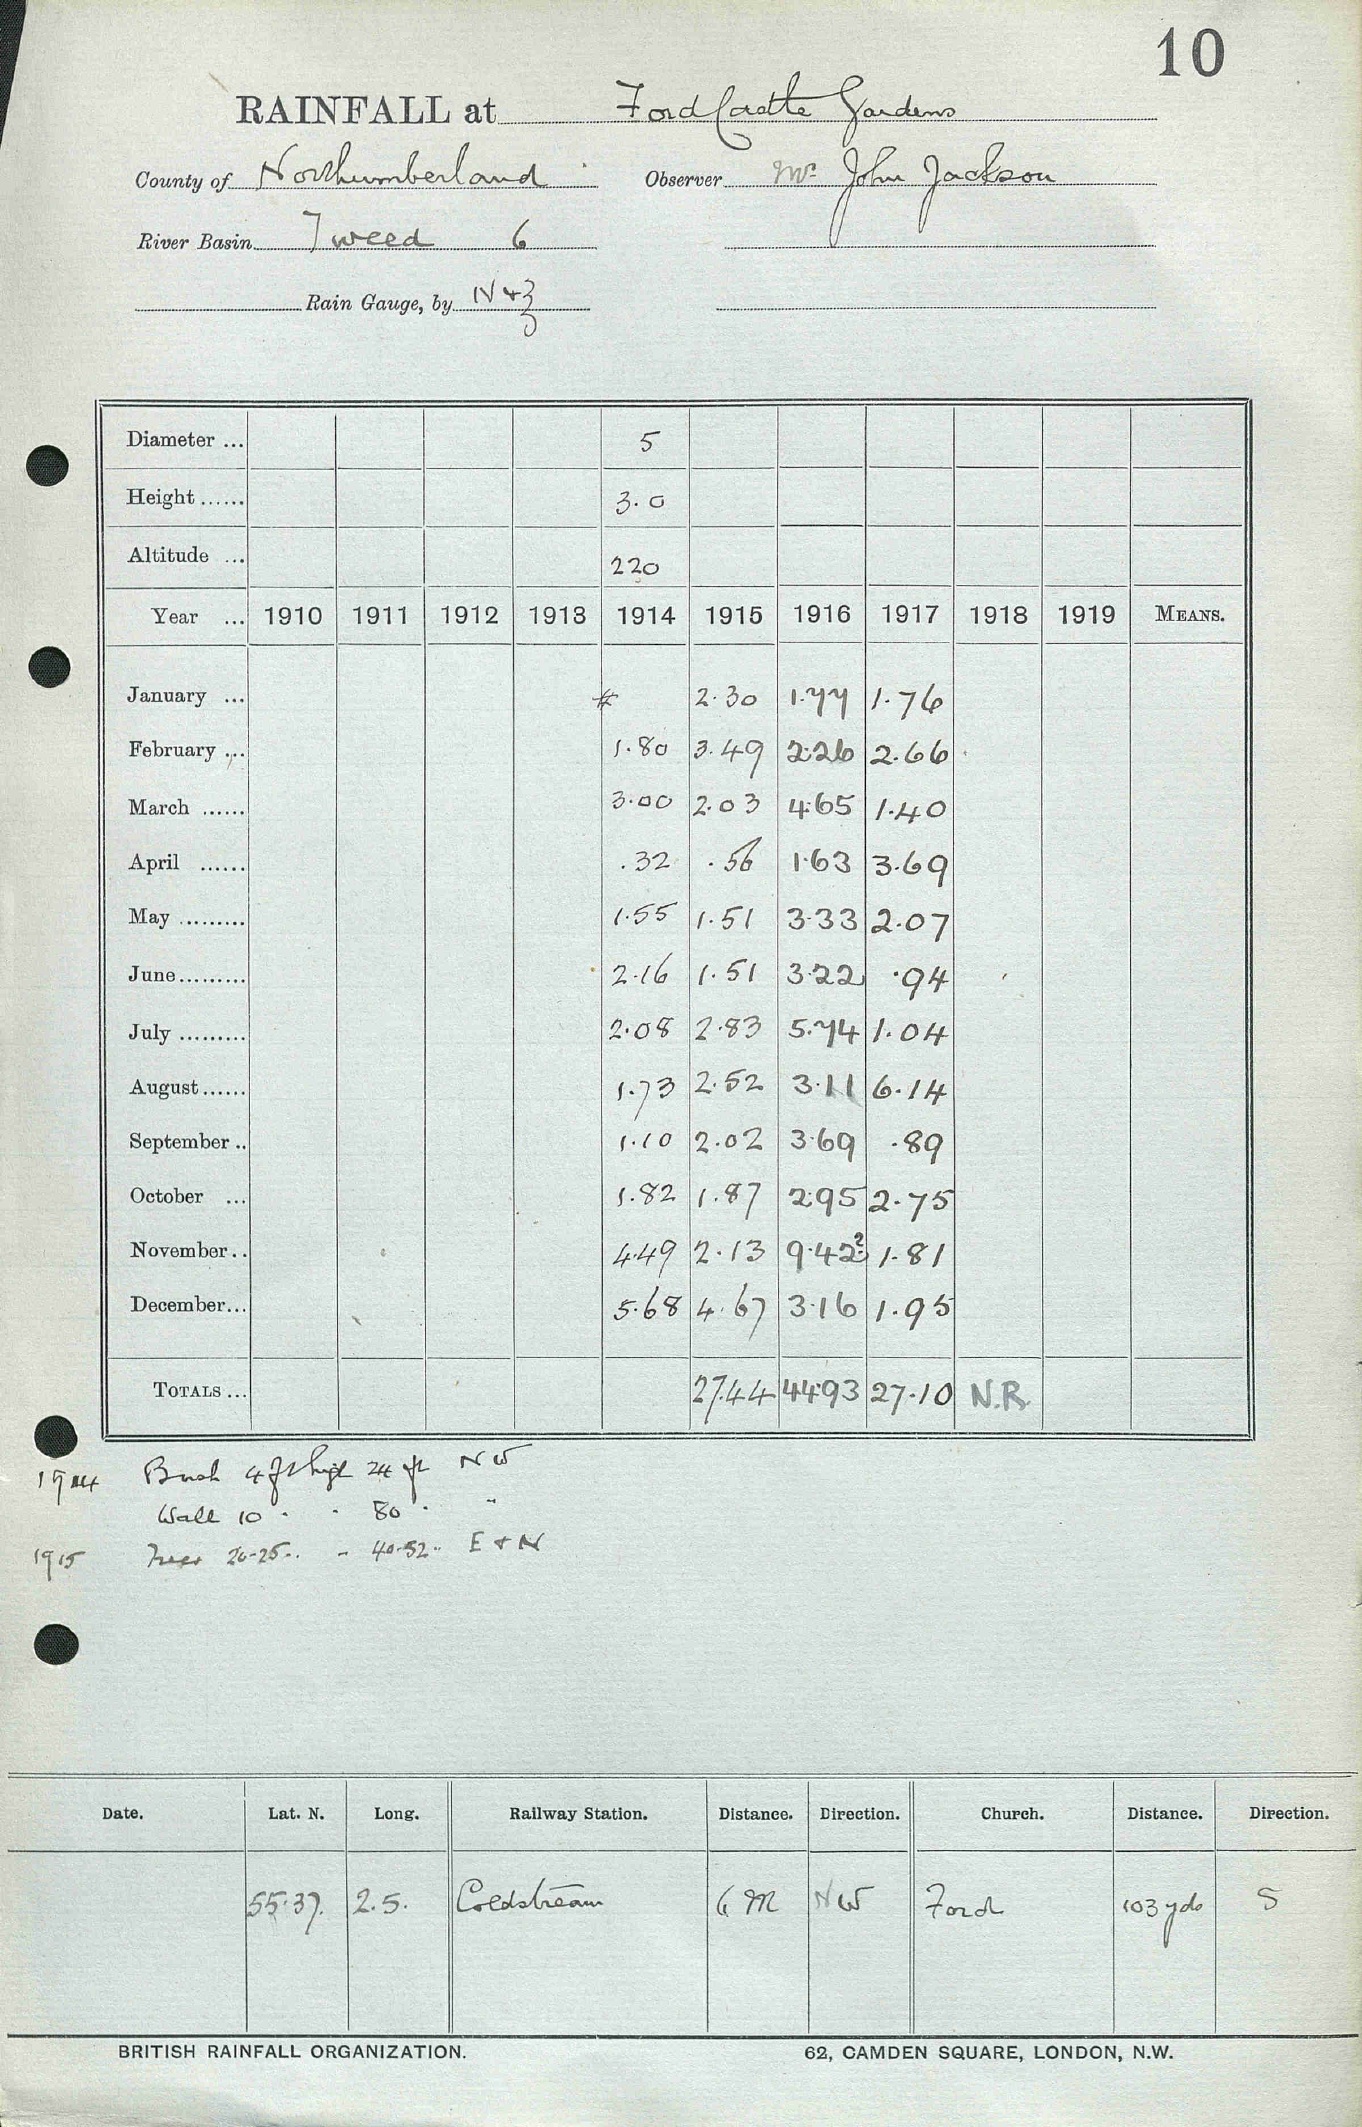 10
RAINFALL at Ford Castle Gardens
County of Northumberland Observer Mr John Jackson
River Basin Tweed 6
Rain Gauge, by N & Z
Diameter ... 5
Height ...... 3.0
Altitude ... 220
Year ... 1910 1911 1912 1913 1914 1915 1916 1917 1918 1919 MEANS.
January ... # 2.30 1.77 1.76
February ... 1.80 3.49 2.26 2.66
March ...... 3.00 2.03 4.65 1.40
April ...... .32 .56 1.63 3.69
May ......... 1.55 1.51 3.33 2.07
June......... 2.16 1.51 3.22 .94
July ......... 2.08 2.83 5.74 1.04
August...... 1.73 2.52 3.11 6.14
September .. 1.10 2.02 3.69 .89
October ... 1.82 1.87 2.95 2.75
November.. 4.49 2.13 9.42? 1.81
December... 5.68 4.67 3.16 1.95
TOTALS ... 27.44 44.93 27.10 N.R.
1914 Bush 4 ft high 24 ft NW
Wall 10 " " 80 " "
1915 Trees 20-25 " " 40-52 " E & N
Date. Lat. N. Long. Railway Station. Distance. Direction. Church. Distance. Direction.
55.37. 2.5. Coldstream 6 M NW Ford 103 yds S
BRITISH RAINFALL ORGANIZATION. 62, CAMDEN SQUARE, LONDON, N.W.